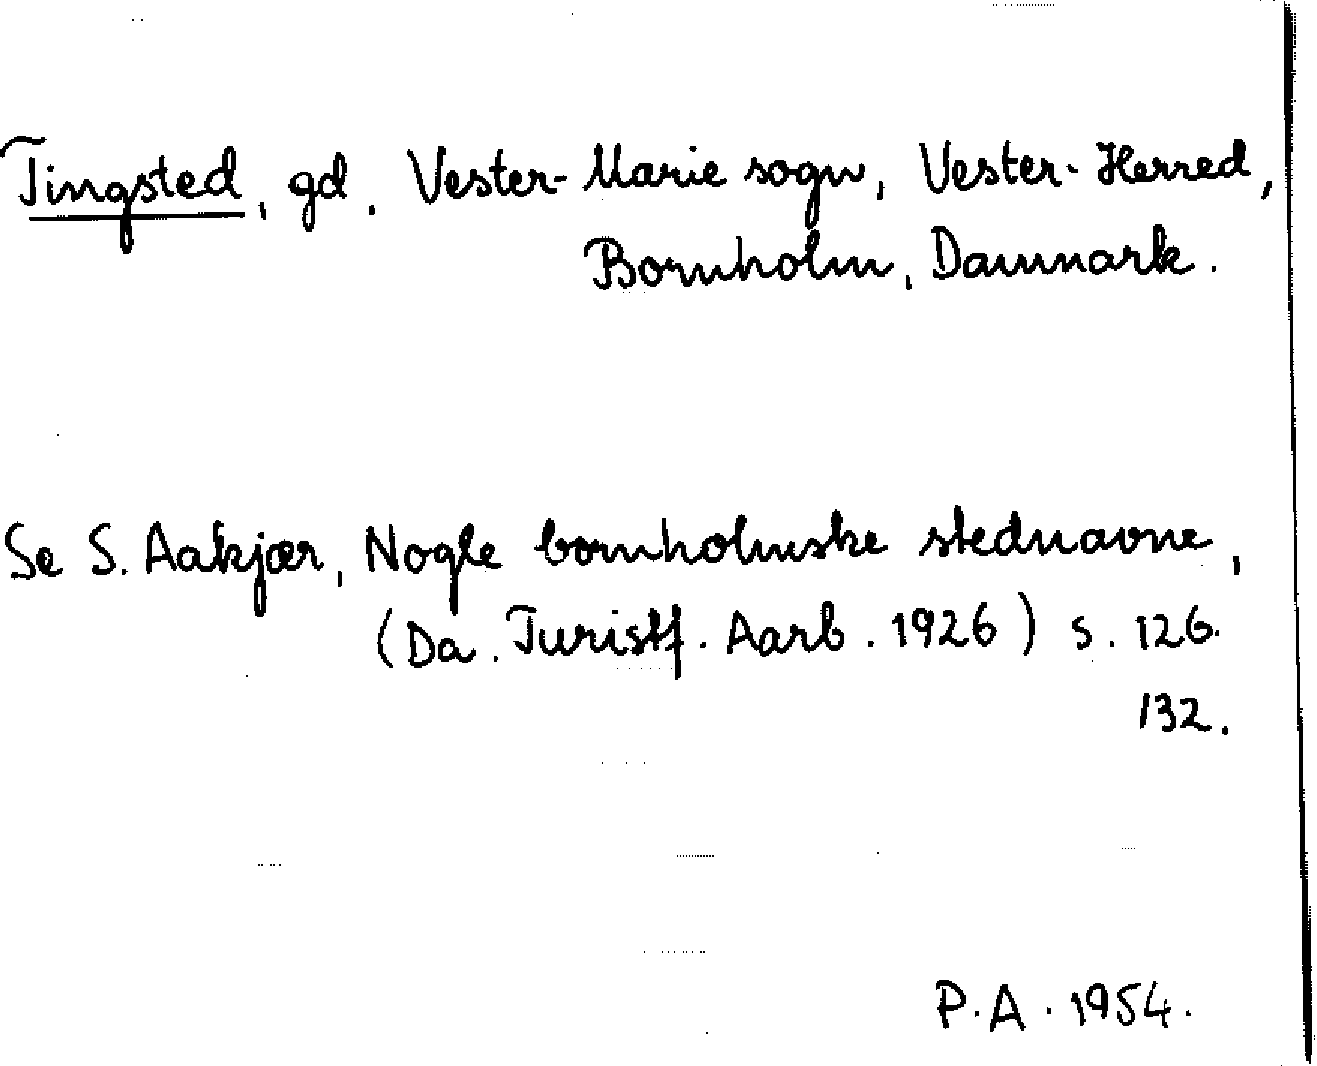 Tingsted, gd. Vester-Marie sogn, Vester-Herred,
Bornholm, Danmark.
Se S. Aakjær, Nogle bornholmske stednavne,
(Da. Turistf. Aarb. 1926) s. 126.
132.
P.A. 1954.